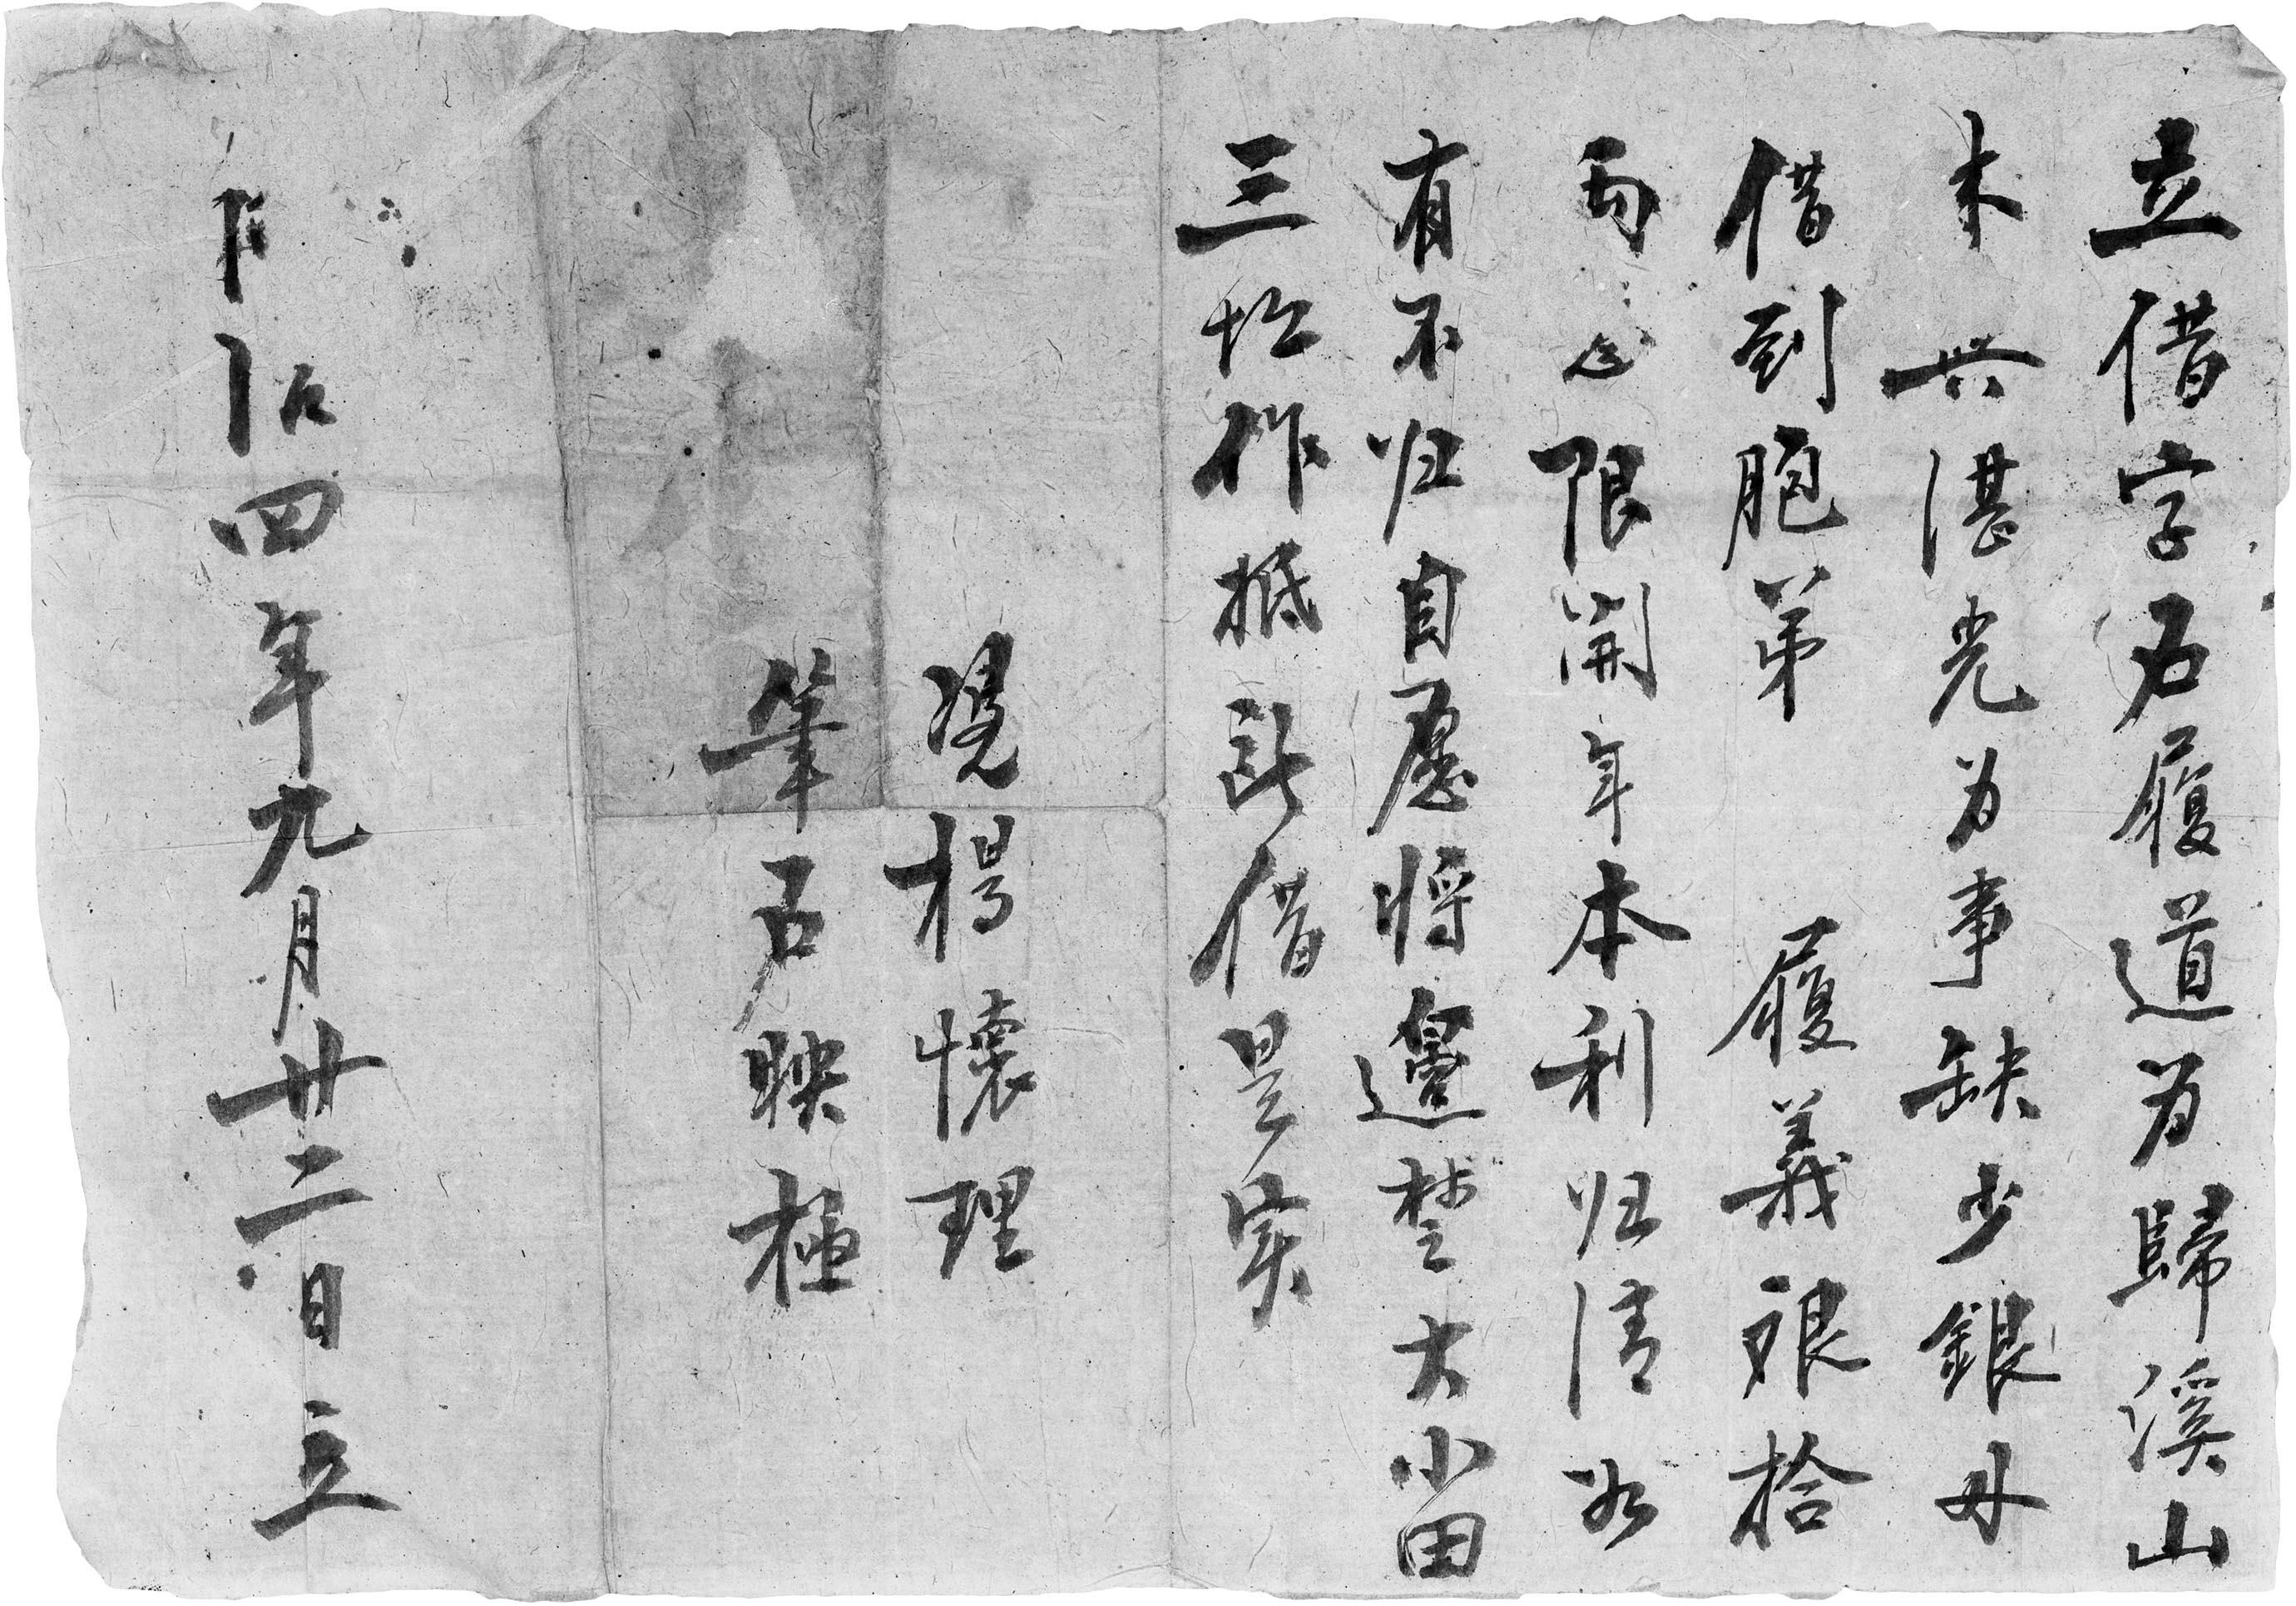 立借字石履道为歸溪山
木共湛光为事缺少銀用
借到胞弟 履義艮拾
両正限開年本利归清如
有不归自愿将邊埜大小田
三坵作抵所借是実
凭楊懷理
筆石映極
同治四年九月廿二日立